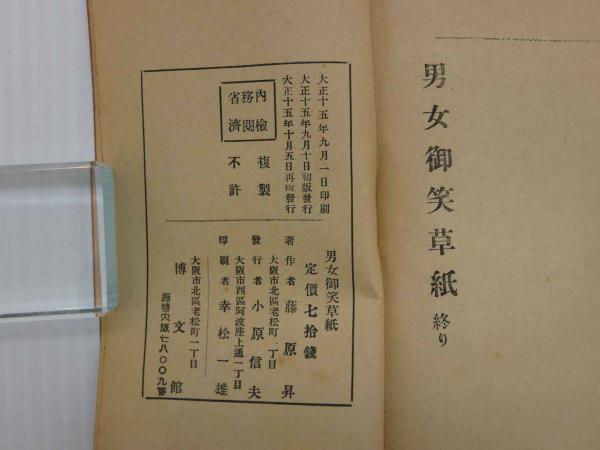 男女御笑草紙 終り
大正十五年九月一日印刷
大正十五年九月十日初版發行
大正十五年十月五日再版發行
內務省
檢閱濟
複製
不許
男女御笑草紙
定價七拾錢
著作者 藤原昇
大阪市北區老松町一丁目
發行者 小原信夫
大阪市西區阿波座上通一丁目
印刷者 幸松一雄
大阪市北區老松町一丁目
博文館
振替大阪七八〇〇九番